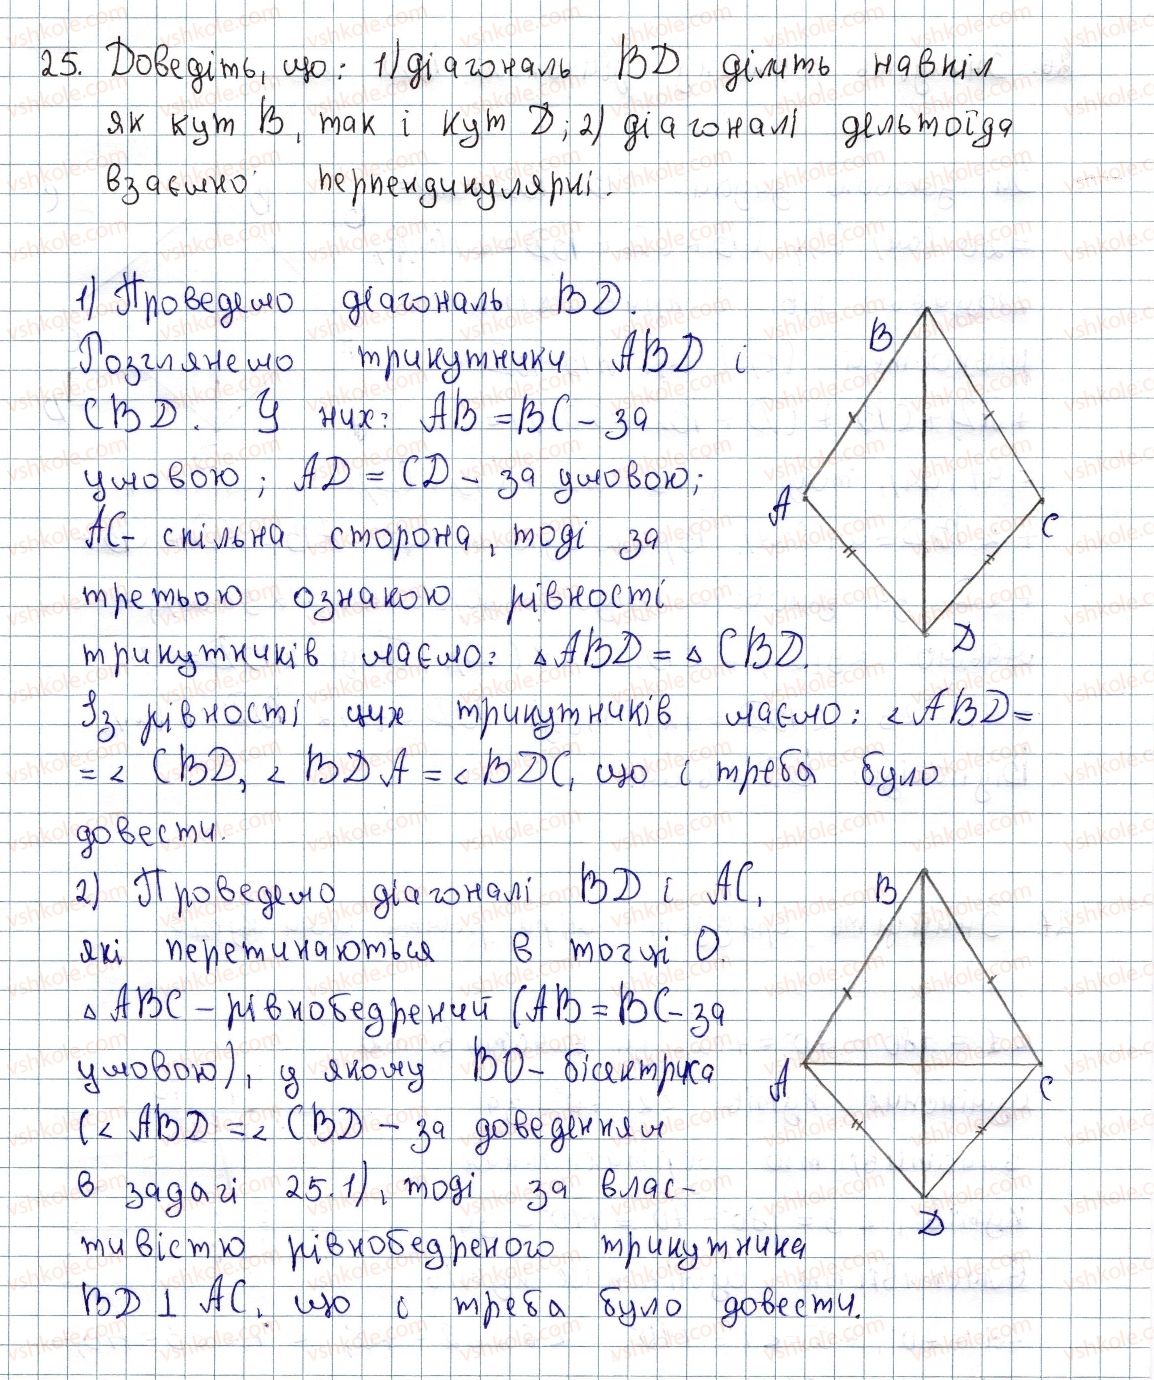 25. Доведіть, що: 1) діагональ BD ділить навпіл
як кут B, так і кут D; 2) діагоналі дельтоїда
взаємно перпендикулярні.
1) Проведемо діагональ BD.
Розглянемо трикутники ABD і
CBD. У них: AB = BC – за
умовою; AD = CD – за умовою;
AC – спільна сторона, тоді за
третьою ознакою рівності
трикутників маємо: ▵ ABD = ▵ CBD.
Із рівності цих трикутників маємо: < ABD =
= < CBD, < BDA = < BDC, що і треба було
довести.
B
A
C
D
2) Проведемо діагоналі BD і AC,
які перетинаються в точці O.
▵ ABC – рівнобедрений (AB = BC – за
умовою), у якому BO – бісектриса
(< ABD = < CBD – за доведенням
в задачі 25.1), тоді за влас-
тивістю рівнобедреного трикутника
BD ⊥ AC, що і треба було довести.
B
A
C
D
vshkole.com